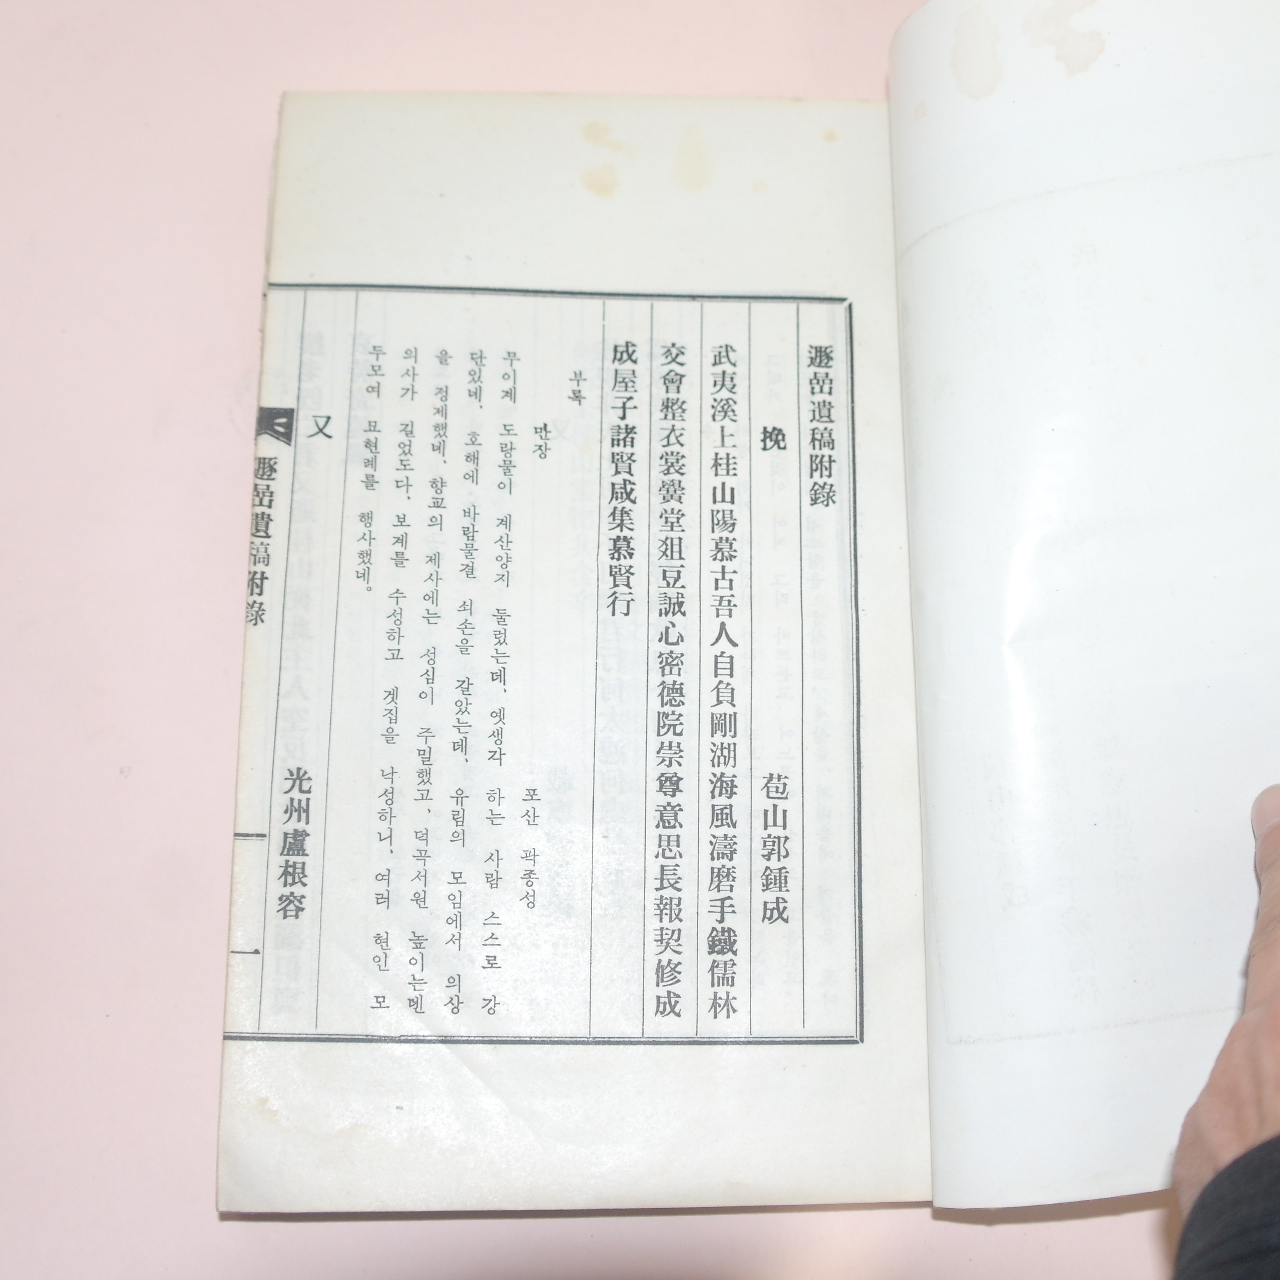 遯嵒遺稿附錄
挽
苞山郭鍾成
武夷溪上桂山陽慕古吾人自負剛湖海風濤磨手鐵儒林
交會整衣裳黌堂爼豆誠心密德院崇尊意思長報契修成
成屋子諸賢咸集慕賢行
부록
만장
포산 곽종성
무이계 도랑물이 계산양지 둘렀는데, 옛생각 하는 사람 스스로 강
단있네, 호해에 바람물결 쇠손을 갈았는데, 유림의 모임에서 의상
을 정제했네, 향교의 제사에는 성심이 주밀했고, 덕곡서원 높이는덴
의사가 길었도다, 보계를 수성하고 겟집을 낙성하니, 여러 현인 모
두모여 묘현례를 행사했네。
又
光州盧根容
遯嵒遺稿附錄
一